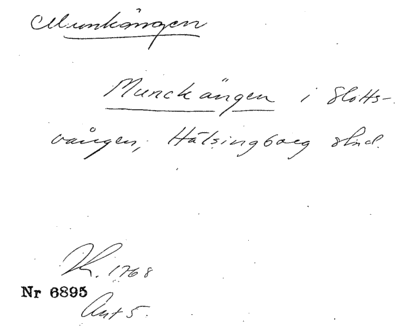 Munkängen
Munckängen i Slotts-
vången, Hälsingborg stad.
K. 1768
Nr 6895
Ant 5.